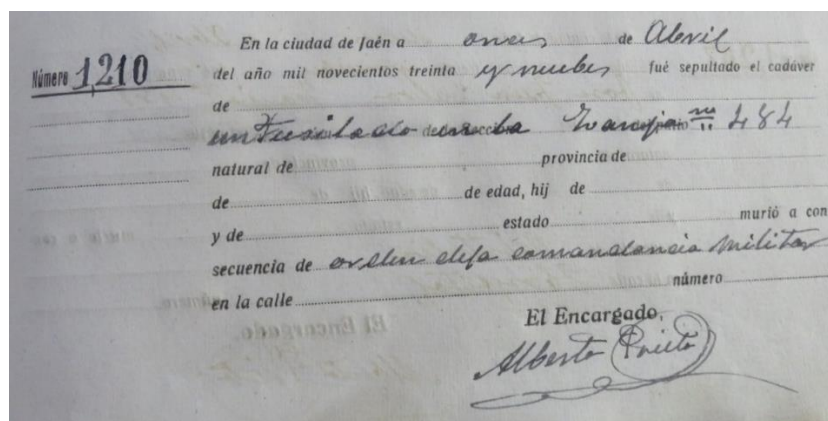 En la ciudad de Jaén a onces de Abril
Número 1,210 del año mil novecientos treinta y nuebes fué sepultado el cadáver
de
un Fusilado en la Zanja nº 484
natural de provincia de
de de edad, hij de
y de estado murió a con
secuencia de orden de la comandancia Militar
en la calle número
El Encargado,
Alberto Prieto